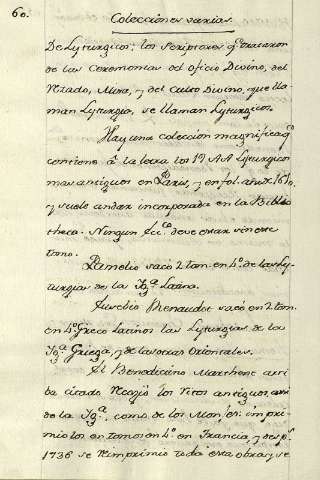 60.
Colecciones varias.
De Lyturgicos; los Scriptores q.e trataron
de las Ceremonias del Oficio Divino, del
Rezado, Misa, y del Culto Divino, que lla
man Lyturgia, se llaman Lyturgicos.
Hay una coleccion magnifica q.e
contiene á la letra los AA Lyturgicos
mas antiguos en Paris, y en fol. año de 1610,
y suele andar incorporada en la Biblio
theca. Ningun Ecc.co deve estar sin este
tomo.
Pamelio sacó 2 tom. en 4.º de las Ly-
turgias de la Yg.a Latina.
Eusebio Renaudot sacó en 2 tom.
en 4.º Greco Latinos las Lyturgias de la
Yg.a Griega, y de las otras Orientales.
El Benedictino Martene arri
ba citado Recogió los Ritos antiguos, asi
de la Yg.a, como de los Mon.es: impri
miolos en tomos en 4.º en Francia, y desp.s
1736 se Reimprimio toda esta obra, y se